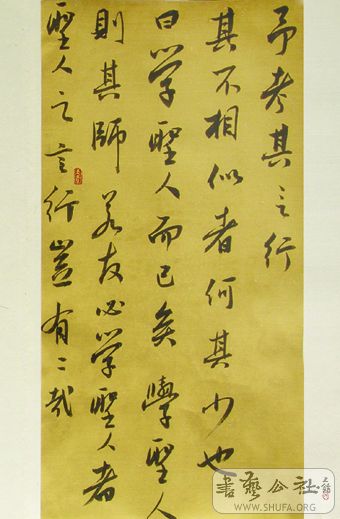 予考其言行
其不相似者何其少也
曰学聖人而已矣學聖人
則其師若友必学聖人者
聖人之言行豈有二哉
書藝公社
WWW.SHUFA.ORG